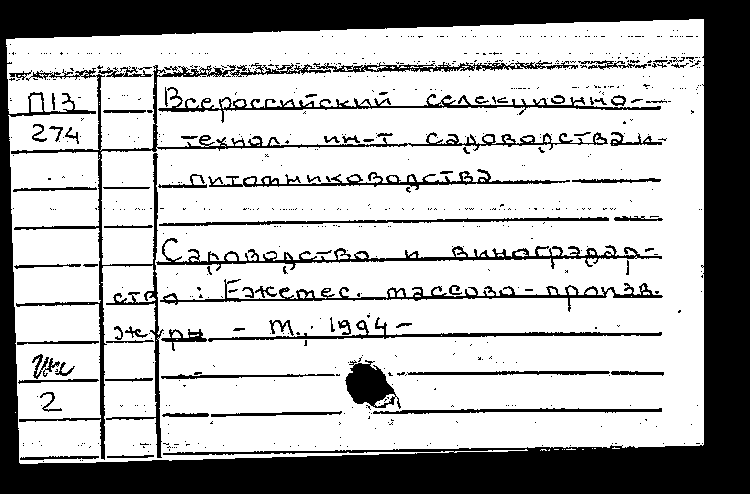 П13
274
Всероссийский селекционно-
технол. ин-т садоводства и
питомниководства
Садоводство и виноградар-
ство : Ежемес. массово-произв.
журн. - М., 1994-
2